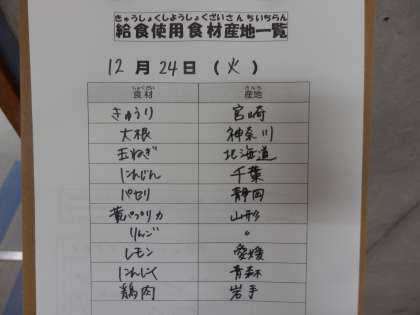 きゅうしょくしようしょくざいさんちいちらん
給食使用食材産地一覧
12月24日(火)
しょくざい さんち
食材 産地
きゅうり 宮崎
大根 神奈川
玉ねぎ 北海道
にんじん 千葉
パセリ 静岡
黄パプリカ 山形
りんご 〃
レモン 愛媛
にんにく 青森
鶏肉 岩手